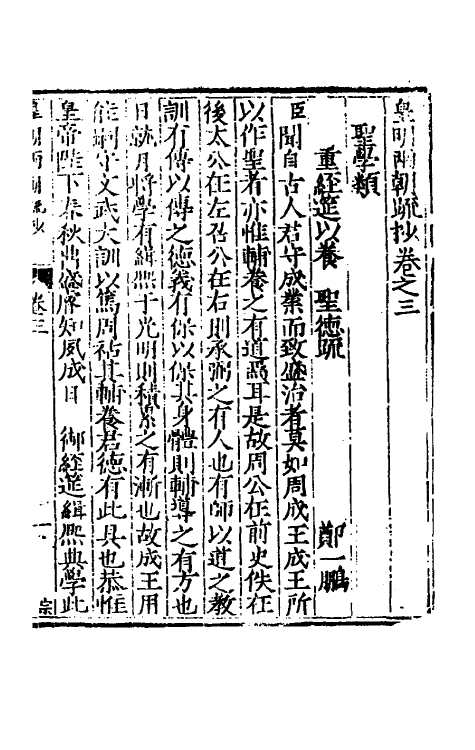 皇明兩朝疏抄卷之三
聖學類
重經筵以養　聖德疏　鄭一鵬
臣聞自古人君守成業而致盛治者莫如周成王成王所
以作聖者亦惟輔養之有道焉耳是故周公在前史佚在
後太公在左召公在右則承弼之有人也有師以道之教
訓有傅以傅之德義有保以保其身體則輔導之有方也
日就月將學有緝熙于光明則積累之有漸也故成王用
能嗣守文武大訓以爲周祜其輔養君德有此具也恭惟
皇帝陛下春秋鼎盛睿知夙成日　御經筵緝熙典學此
皇明兩朝疏抄　卷三　一　宗